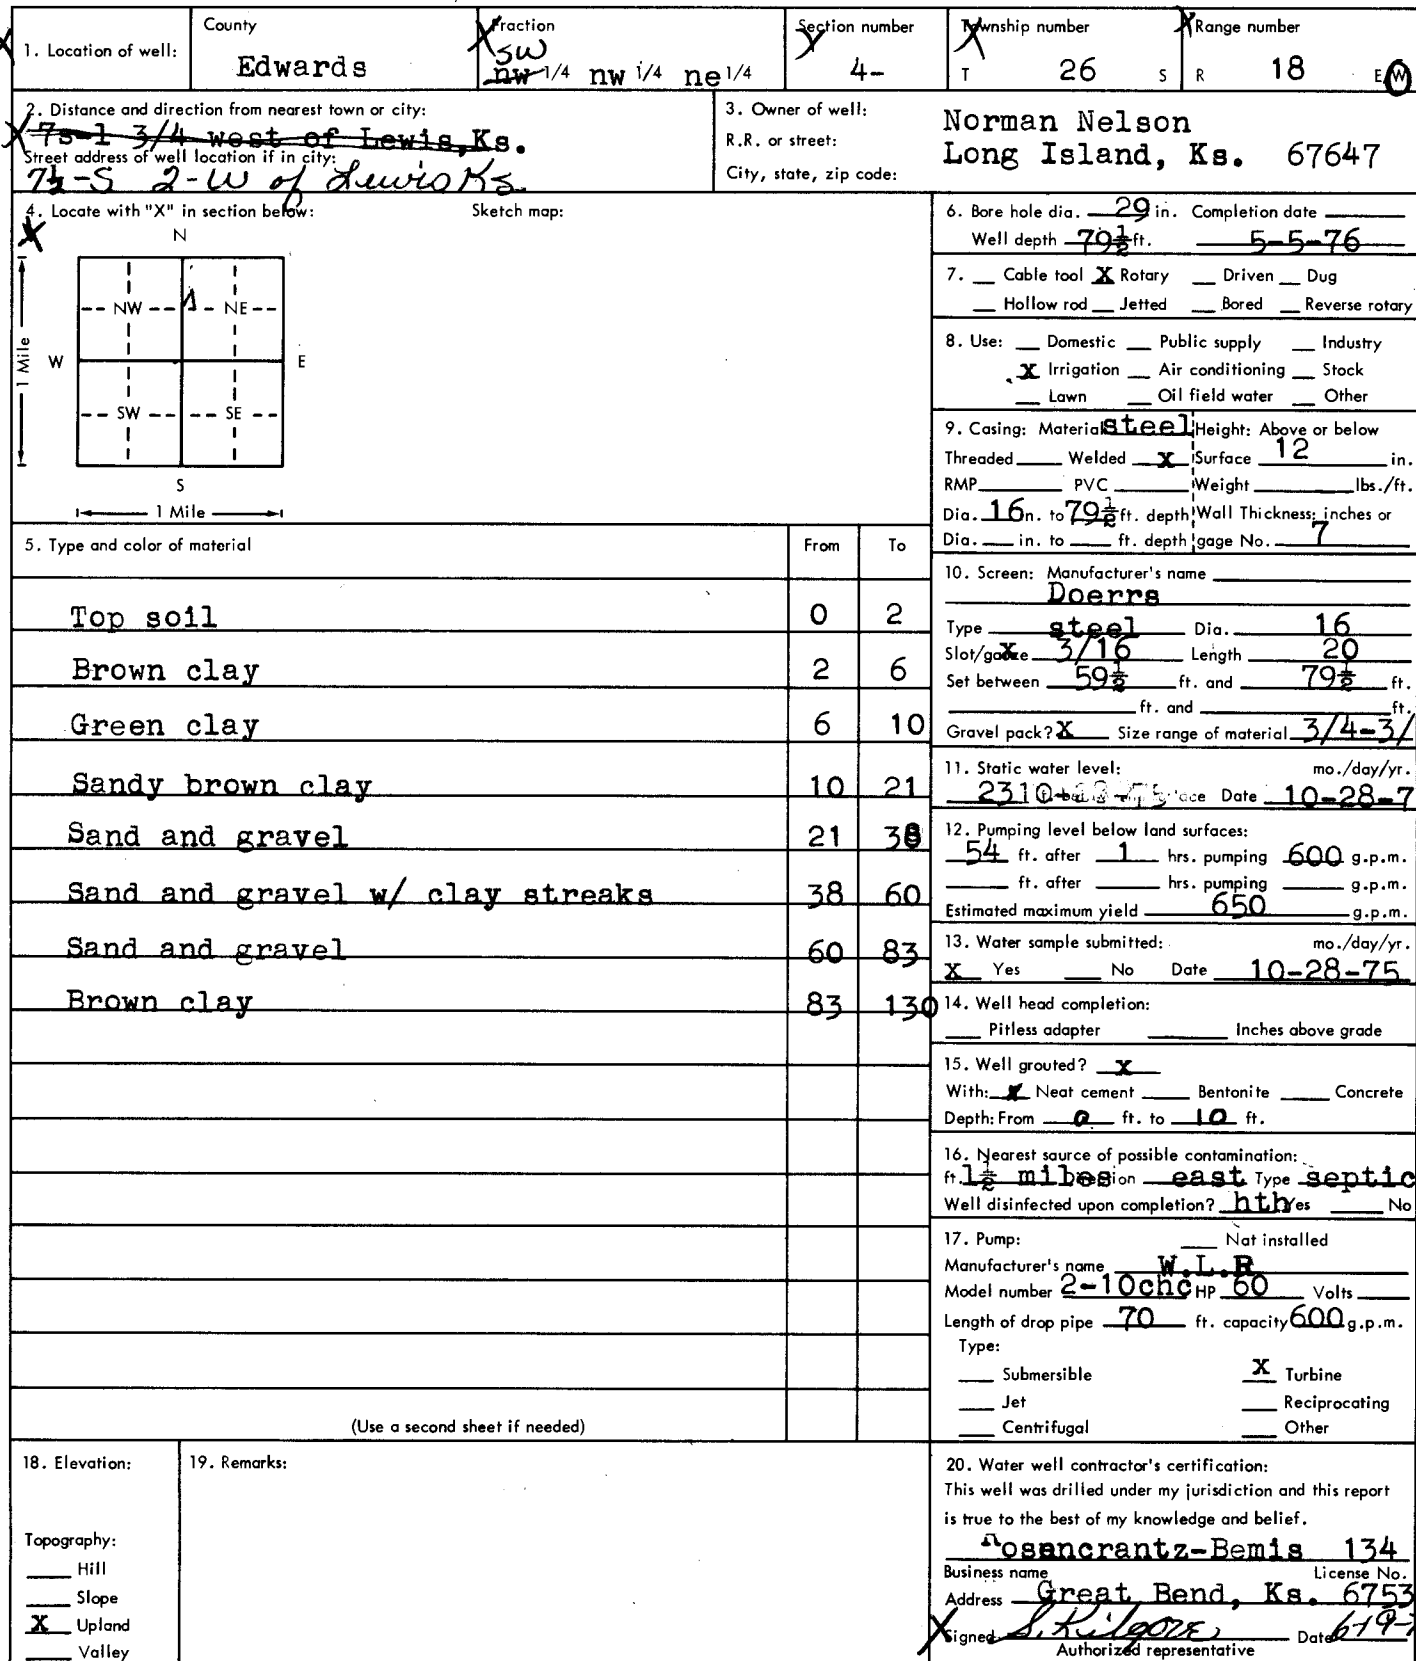 1. Location of well:
County
Edwards
Fraction
SW
nw 1/4 nw 1/4 ne 1/4
Section number
4-
Township number
T 26 S
Range number
R 18 E W
2. Distance and direction from nearest town or city:
7s-1 3/4 west of Lewis,Ks.
Street address of well location if in city:
7½-S 2-W of Lewis Ks.
3. Owner of well:
R.R. or street:
City, state, zip code:
Norman Nelson
Long Island, Ks. 67647
4. Locate with "X" in section below:
Sketch map:
N
NW NE
W E
SW SE
S
1 Mile
1 Mile
5. Type and color of material From To
Top soil 0 2
Brown clay 2 6
Green clay 6 10
Sandy brown clay 10 21
Sand and gravel 21 38
Sand and gravel w/ clay streaks 38 60
Sand and gravel 60 83
Brown clay 83 130
(Use a second sheet if needed)
6. Bore hole dia. 29 in. Completion date
Well depth 79½ ft. 5-5-76
7. Cable tool X Rotary Driven Dug
Hollow rod Jetted Bored Reverse rotary
8. Use: Domestic Public supply Industry
X Irrigation Air conditioning Stock
Lawn Oil field water Other
9. Casing: Material steel Height: Above or below
Threaded Welded X Surface 12 in.
RMP PVC Weight lbs./ft.
Dia. 16 in. to 79½ ft. depth Wall Thickness: inches or
Dia. in. to ft. depth gage No. 7
10. Screen: Manufacturer's name
Doerrs
Type steel Dia. 16
Slot/gauze X 3/16 Length 20
Set between 59½ ft. and 79½ ft.
ft. and ft.
Gravel pack? X Size range of material 3/4-3/
11. Static water level: mo./day/yr.
23 Date 10-28-7
12. Pumping level below land surfaces:
54 ft. after 1 hrs. pumping 600 g.p.m.
ft. after hrs. pumping g.p.m.
Estimated maximum yield 650 g.p.m.
13. Water sample submitted: mo./day/yr.
X Yes No Date 10-28-75
14. Well head completion:
Pitless adapter Inches above grade
15. Well grouted? X
With: X Neat cement Bentonite Concrete
Depth: From 0 ft. to 10 ft.
16. Nearest source of possible contamination:
ft. 1½ miles east Type septic
Well disinfected upon completion? hth Yes No
17. Pump: Not installed
Manufacturer's name W.L.R
Model number 2-10chc HP 60 Volts
Length of drop pipe 70 ft. capacity 600 g.p.m.
Type:
Submersible X Turbine
Jet Reciprocating
Centrifugal Other
18. Elevation:
Topography:
Hill
Slope
X Upland
Valley
19. Remarks:
20. Water well contractor's certification:
This well was drilled under my jurisdiction and this report
is true to the best of my knowledge and belief.
Rosencrantz-Bemis 134
Business name License No.
Address Great Bend, Ks. 6753
Signed S. Kilgore Date 6-19-
Authorized representative